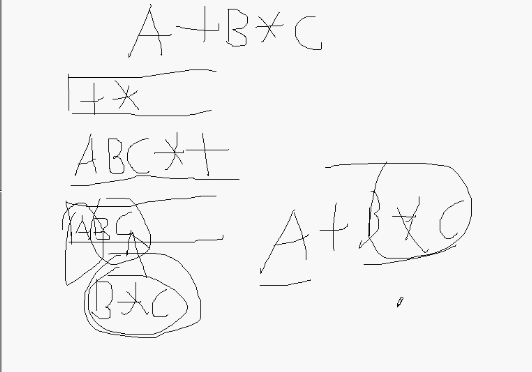 A+B*C
+*
ABC*+
ABC
A+B*C
B*C